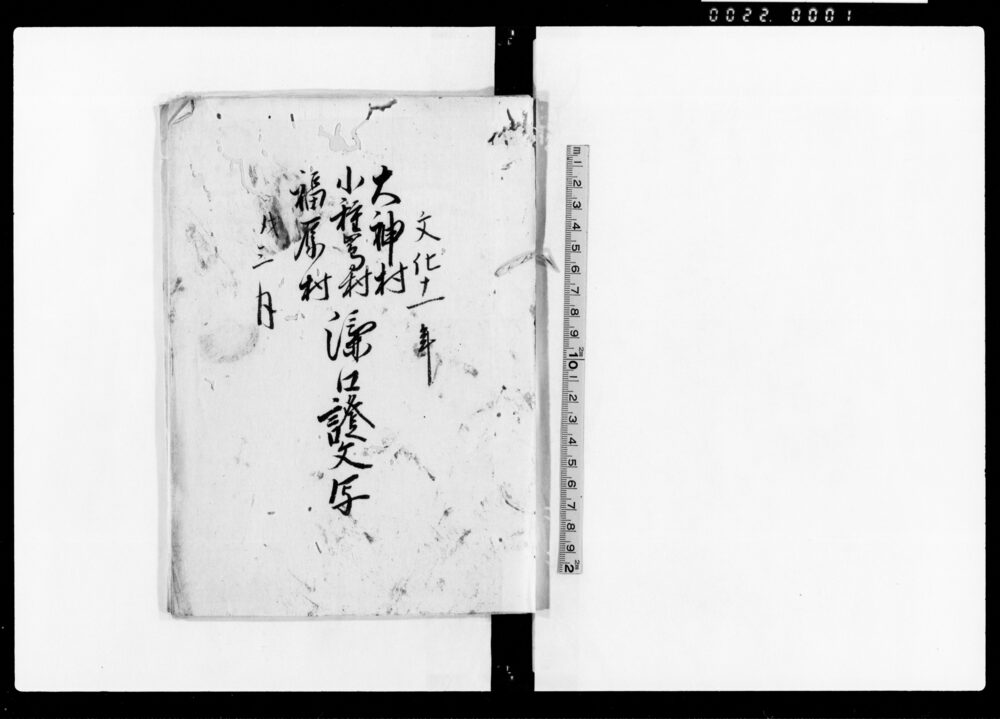 0022 0001
文化十一年
大神村
小種村
福原村
口證文写
戌三月
m 1 2 3 4 5 6 7 8 9 10 1 2 3 4 5 6 7 8 9 2